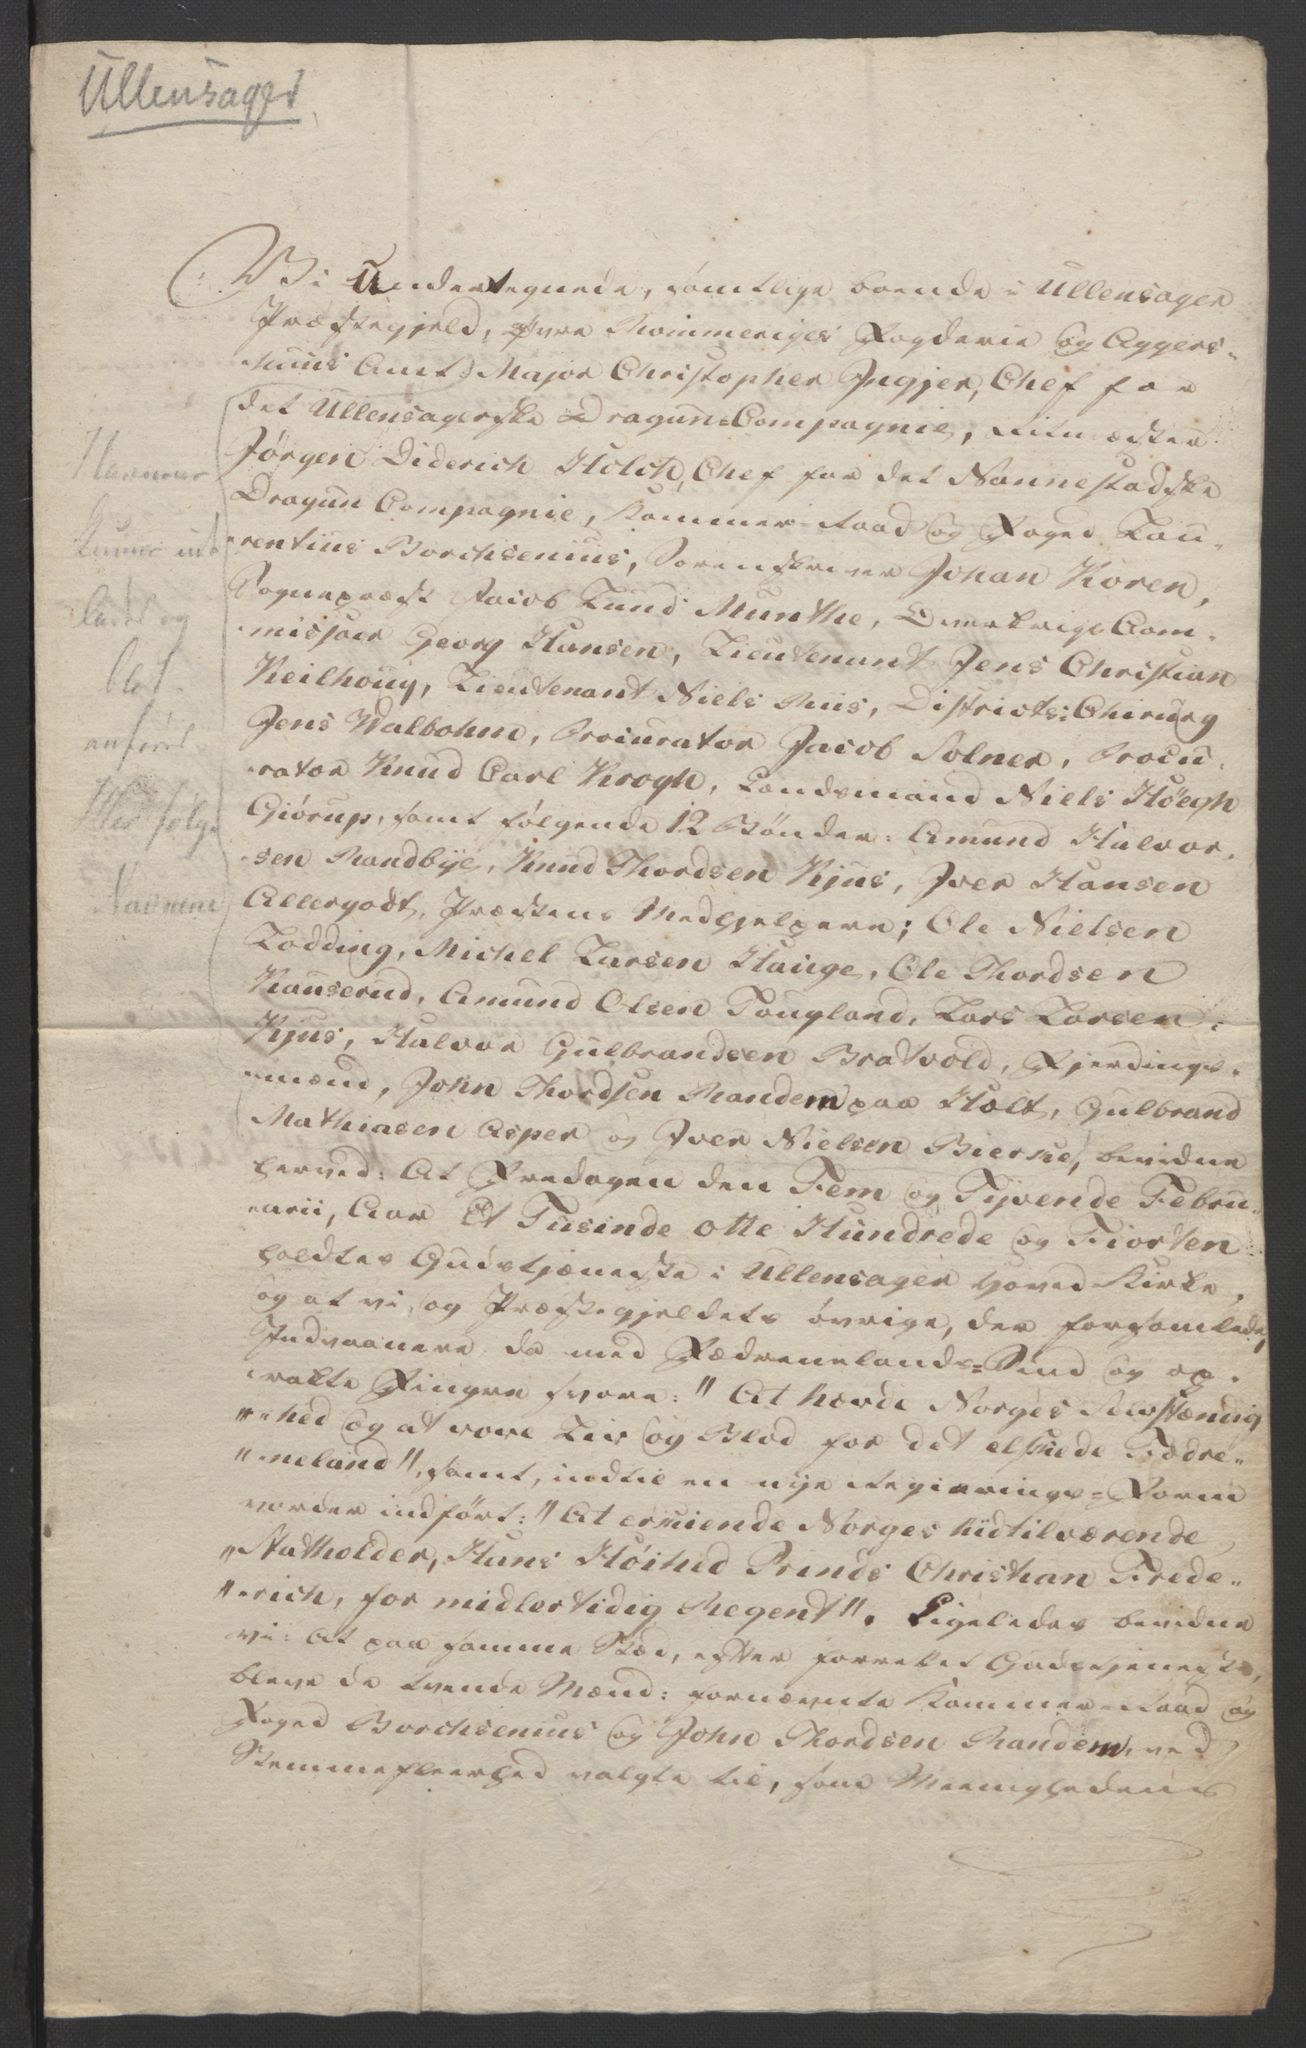 Ullensager
Vi Undertegnede, samtlige boende i Ullensager
Præstegjeld, Øvre Rommeriges Fogderie og Aggers-
huus Amt: Major Christopher Ingjer, Chef for
det Ullensagerske Dragun-Compagnie, Ritmester
Jørgen Diderich Holch, Chef for det Nannestadske
Dragun Compagnie, Kammer-Raad og Foged Lau-
rentius Borchsenius, Sorenskriver Johan Koren,
Sognepræst Jacob Lund Munthe, Overkrigs Com-
missair Georg Hansen, Lieutenant Jens Christian
Keilhoug, Lieutenant Niels Riis, Districts-Chirurg
Jens Walbohm, Procurator Jacob Solner, Procu-
rator Knud Carl Krogh, Landsmand Niels Høegh
Giörup, samt følgende 12 Bønder: Amund Halvor-
sen Randbye, Knud Thordsen Kjus, Iver Hansen
Allergodt, Præstens Medhjelpere; Ole Nielsen
Lodding, Michel Larsen Hauge, Ole Thordsen
Kauserud, Amund Olsen Tougland, Lars Larsen
Kjus, Halvor Gulbrandsen Bratvold, Fjerdings-
mænd, John Thordsen Randem paa Holt, Gulbrand
Mathiasen Asper og Iver Nielsen Bierke, bevidne
herved: At Fredagen den Fem og Tyvende Febru-
arii, Aar Et Tusinde otte Hundrede og Fiorten
holdtes Gudstjæneste i Ullensager Hoved Kirke,
og at vi, og Præstegjeldets øvrige, der forsamlede,
Indvaanere da med Fædrenelands-Sind og op-
rakte Fingre svore: "At hævde Norges Selvstændig
"hed og at vove Liv og Blod for det elskede Fædre-
"neland", samt, indtil en nye Regierings-Form
vorder indført: "At erkiende Norges hidtilværende
"Statholder, Hans Høihed Prinds Christian Frede-
"rich, for midlertidig Regent". Ligeledes bevidne
vi: At paa samme Stæd, efter forrettet Gudstjeneste,
bleve de tvende Mænd: fornævnte Kammer-Raad og
Foged Borchsenius og John Thordsen Randem, ved
Stemmefleerhed valgte til, som Meenighedens
Navnene
kunne ude
lades og
blot
anføres
Ved følge
Navnene